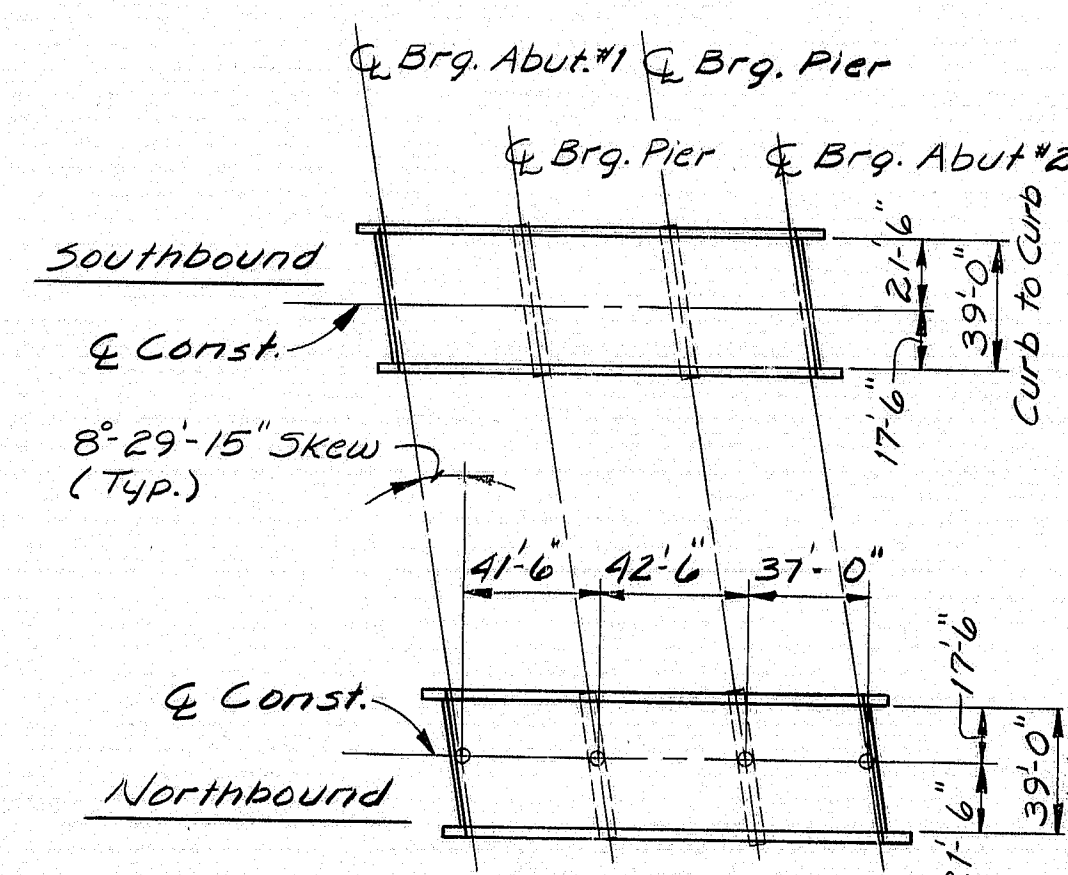 ℄ Brg. Abut.#1
℄ Brg. Pier
℄ Brg. Pier
℄ Brg. Abut #2
Southbound
℄ Const.
21'-6"
17'-6"
39'-0"
Curb to Curb
8°-29'-15" Skew
(Typ.)
41'-6"
42'-6"
37'-0"
℄ Const.
Northbound
17'-6"
39'-0"
1'-6"